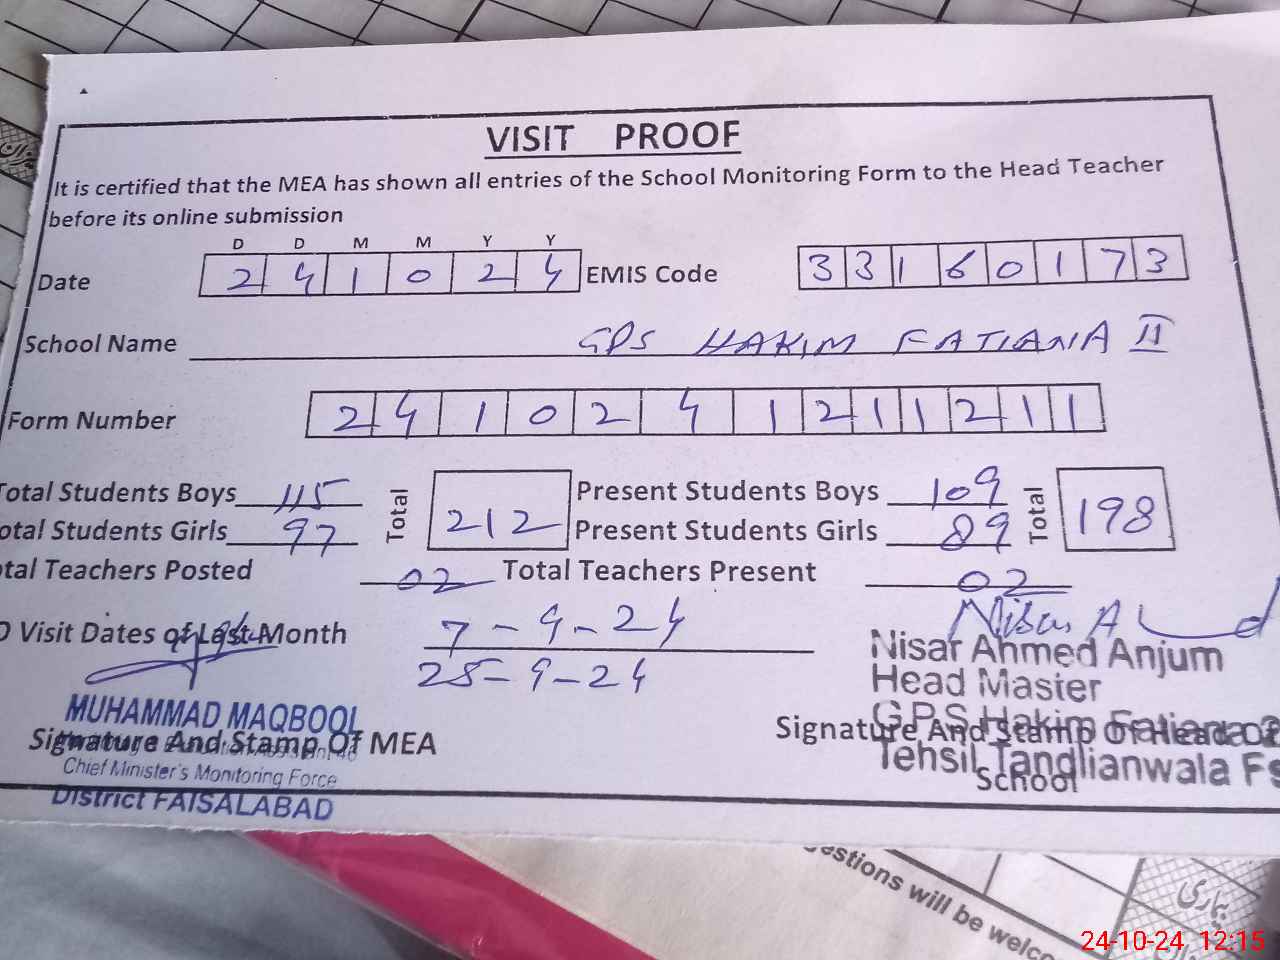 VISIT PROOF
It is certified that the MEA has shown all entries of the School Monitoring Form to the Head Teacher
before its online submission
D D M M Y Y
Date 2 4 1 0 2 4 EMIS Code 3 3 1 6 0 1 7 3
School Name GPS HAKIM FATIANA II
Form Number 2 4 1 0 2 4 1 2 1 1 2 1 1
Total Students Boys 115 Total 212 Present Students Boys 109 Total 198
otal Students Girls 97 Present Students Girls 89
tal Teachers Posted 02 Total Teachers Present 02
O Visit Dates of Last Month 7-9-24
25-9-24
Nisar A
Nisar Ahmed Anjum
Head Master
G.P.S Hakim Fatiana 2
Tehsil Tandlianwala Fs
MUHAMMAD MAQBOOL
Signature And Stamp Of MEA
Signature And Stamp Of Head Of
School
Chief Minister's Monitoring Force
District FAISALABAD
estions will be welco
24-10-24 12:15